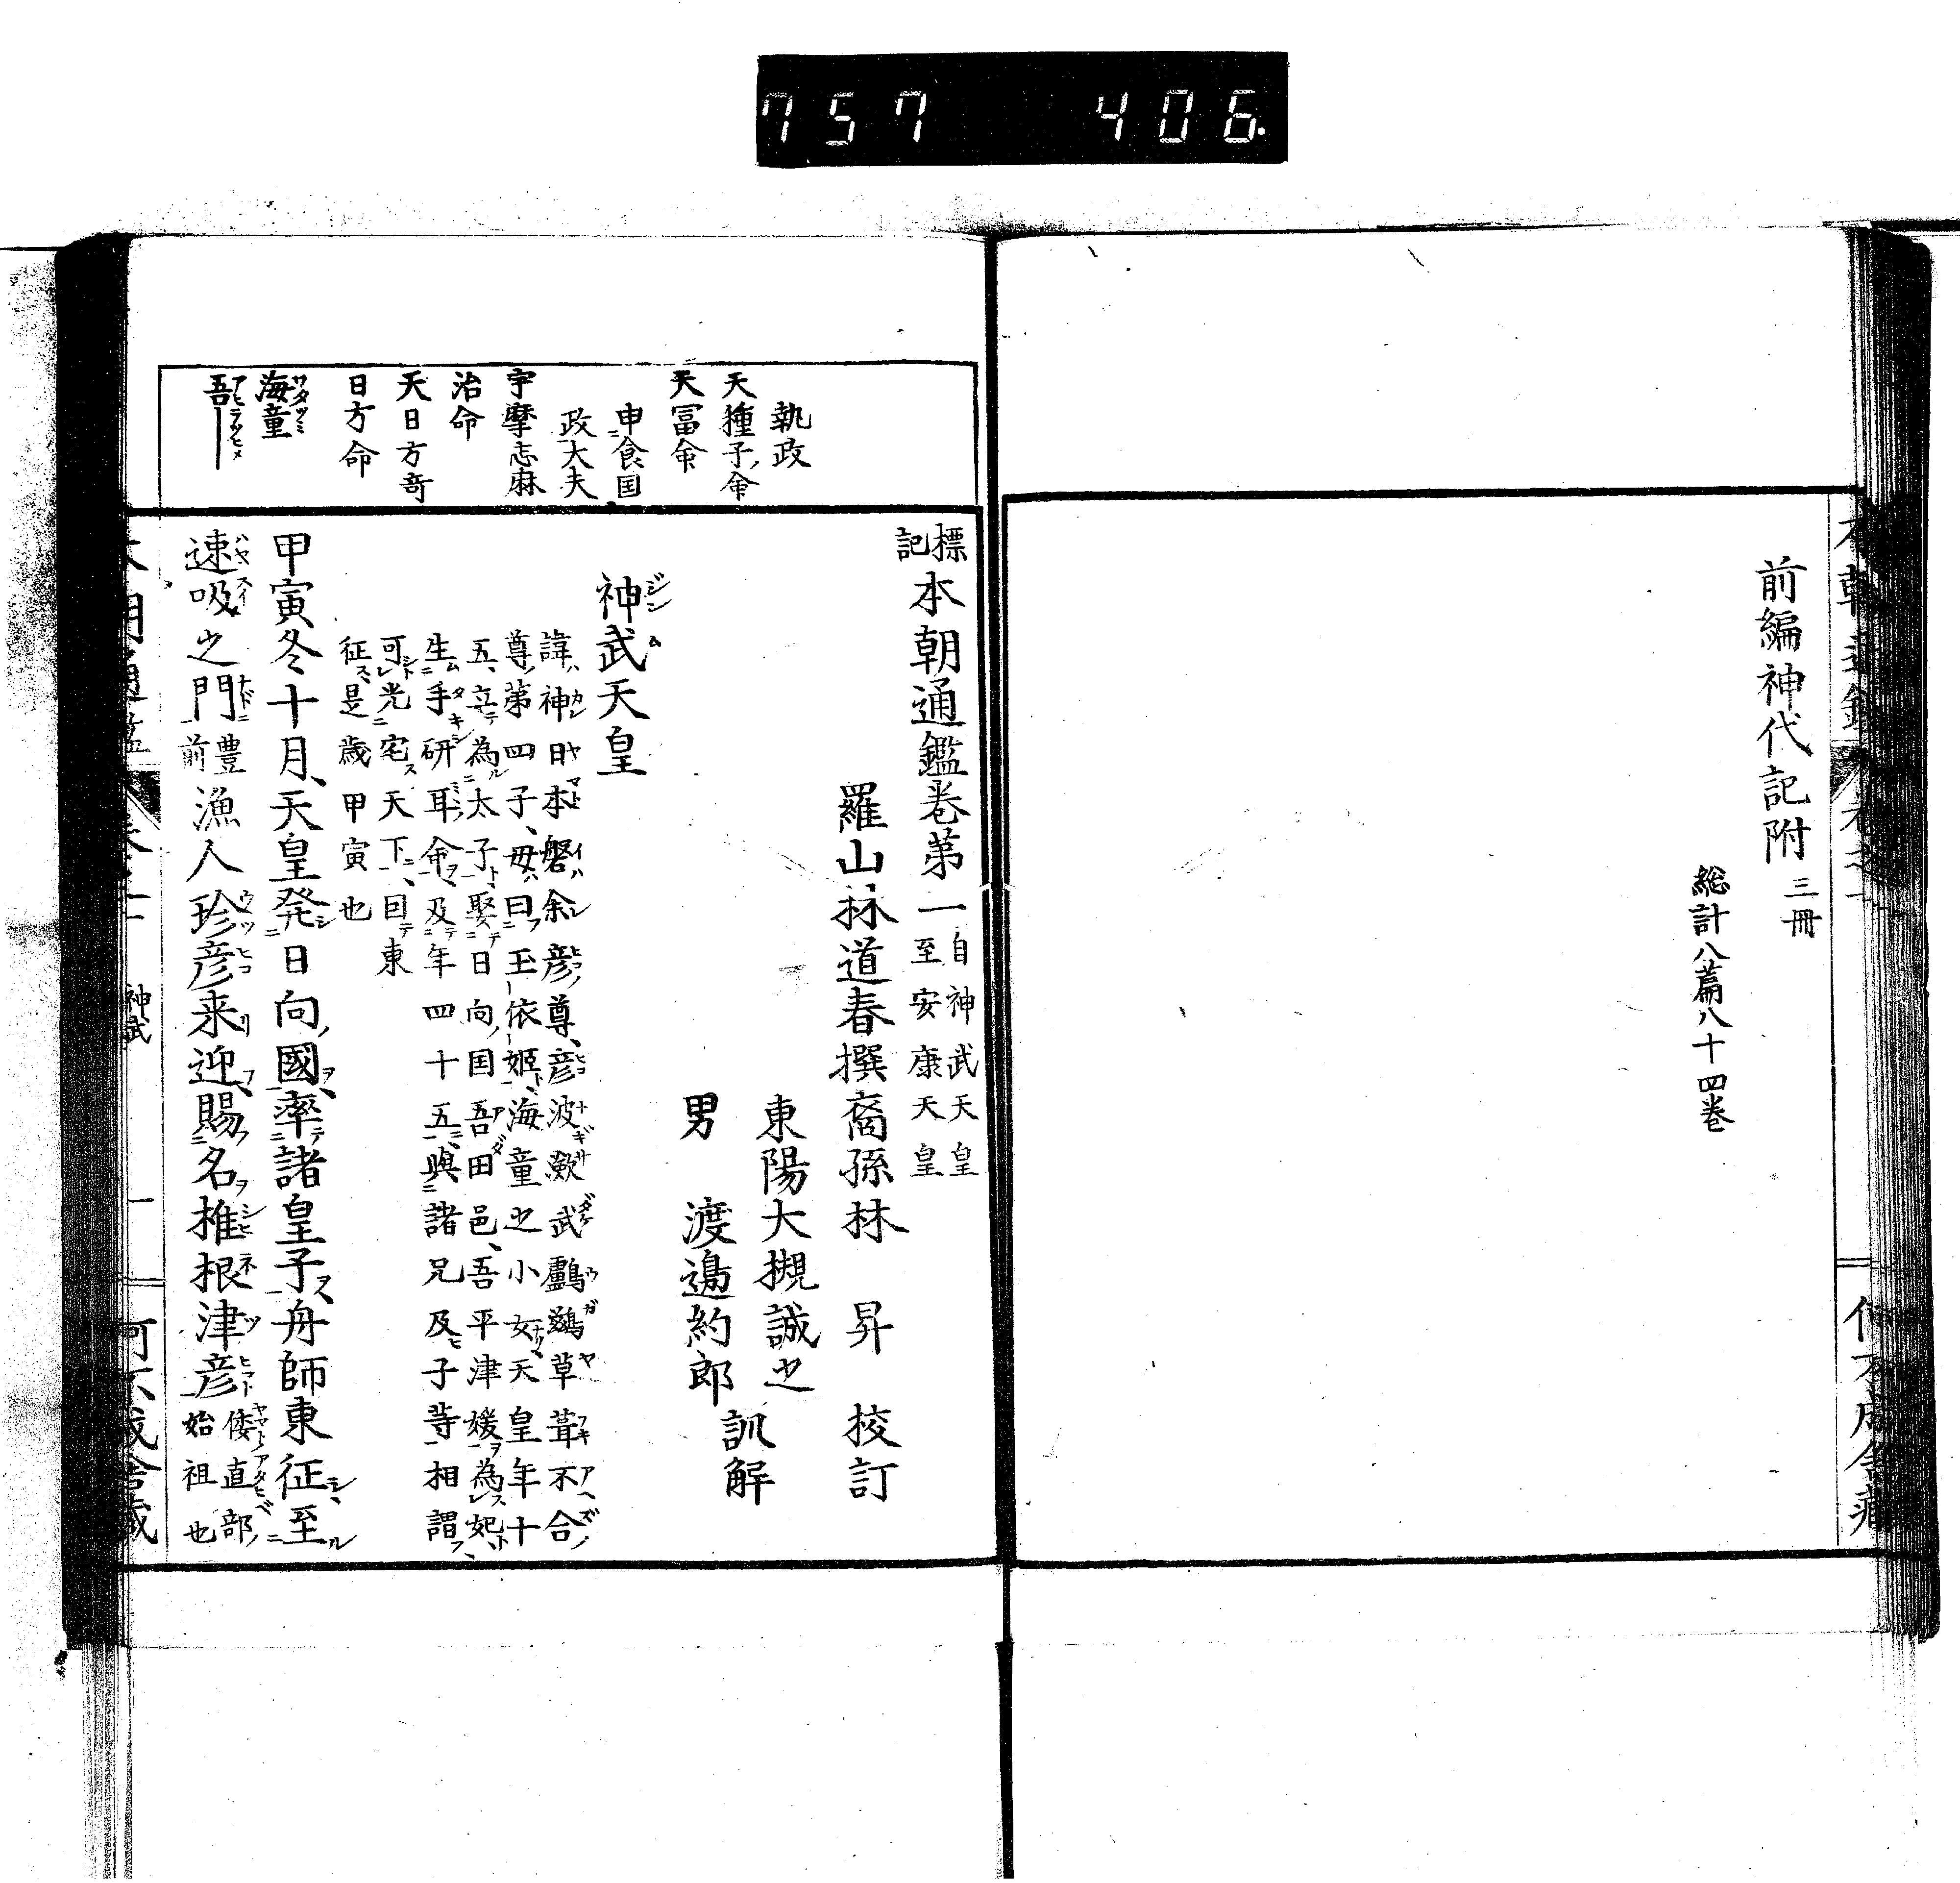 757 406.
前編神代記附 三冊
総計八篇八十四巻
標記 本朝通鑑巻第一 自神武天皇 至安康天皇
羅山林道春撰 裔孫林 昇 校訂
東陽大槻誠之
男 渡邉約郎
訓解
神武天皇
諱神日本磐余彦尊、彦波瀲武鸕鷀草葺不合
尊第四子、母曰玉依姫、海童之小女、天皇年十
五、立為太子、娶日向国吾田邑、吾平津媛為妃、
生手研耳命、及年四十五、與諸兄及子等相謂、
可光宅天下、因東
征、是歳甲寅也
甲寅冬十月、天皇発日向國、率諸皇子舟師東征、至
速吸之門 豊前 漁人珍彦来迎、賜名椎根津彦 倭直部始祖也
執政
天種子命
天冨命
申食国
政大夫
宇摩志麻
治命
天日方奇
日方命
海童
吾
神武
一